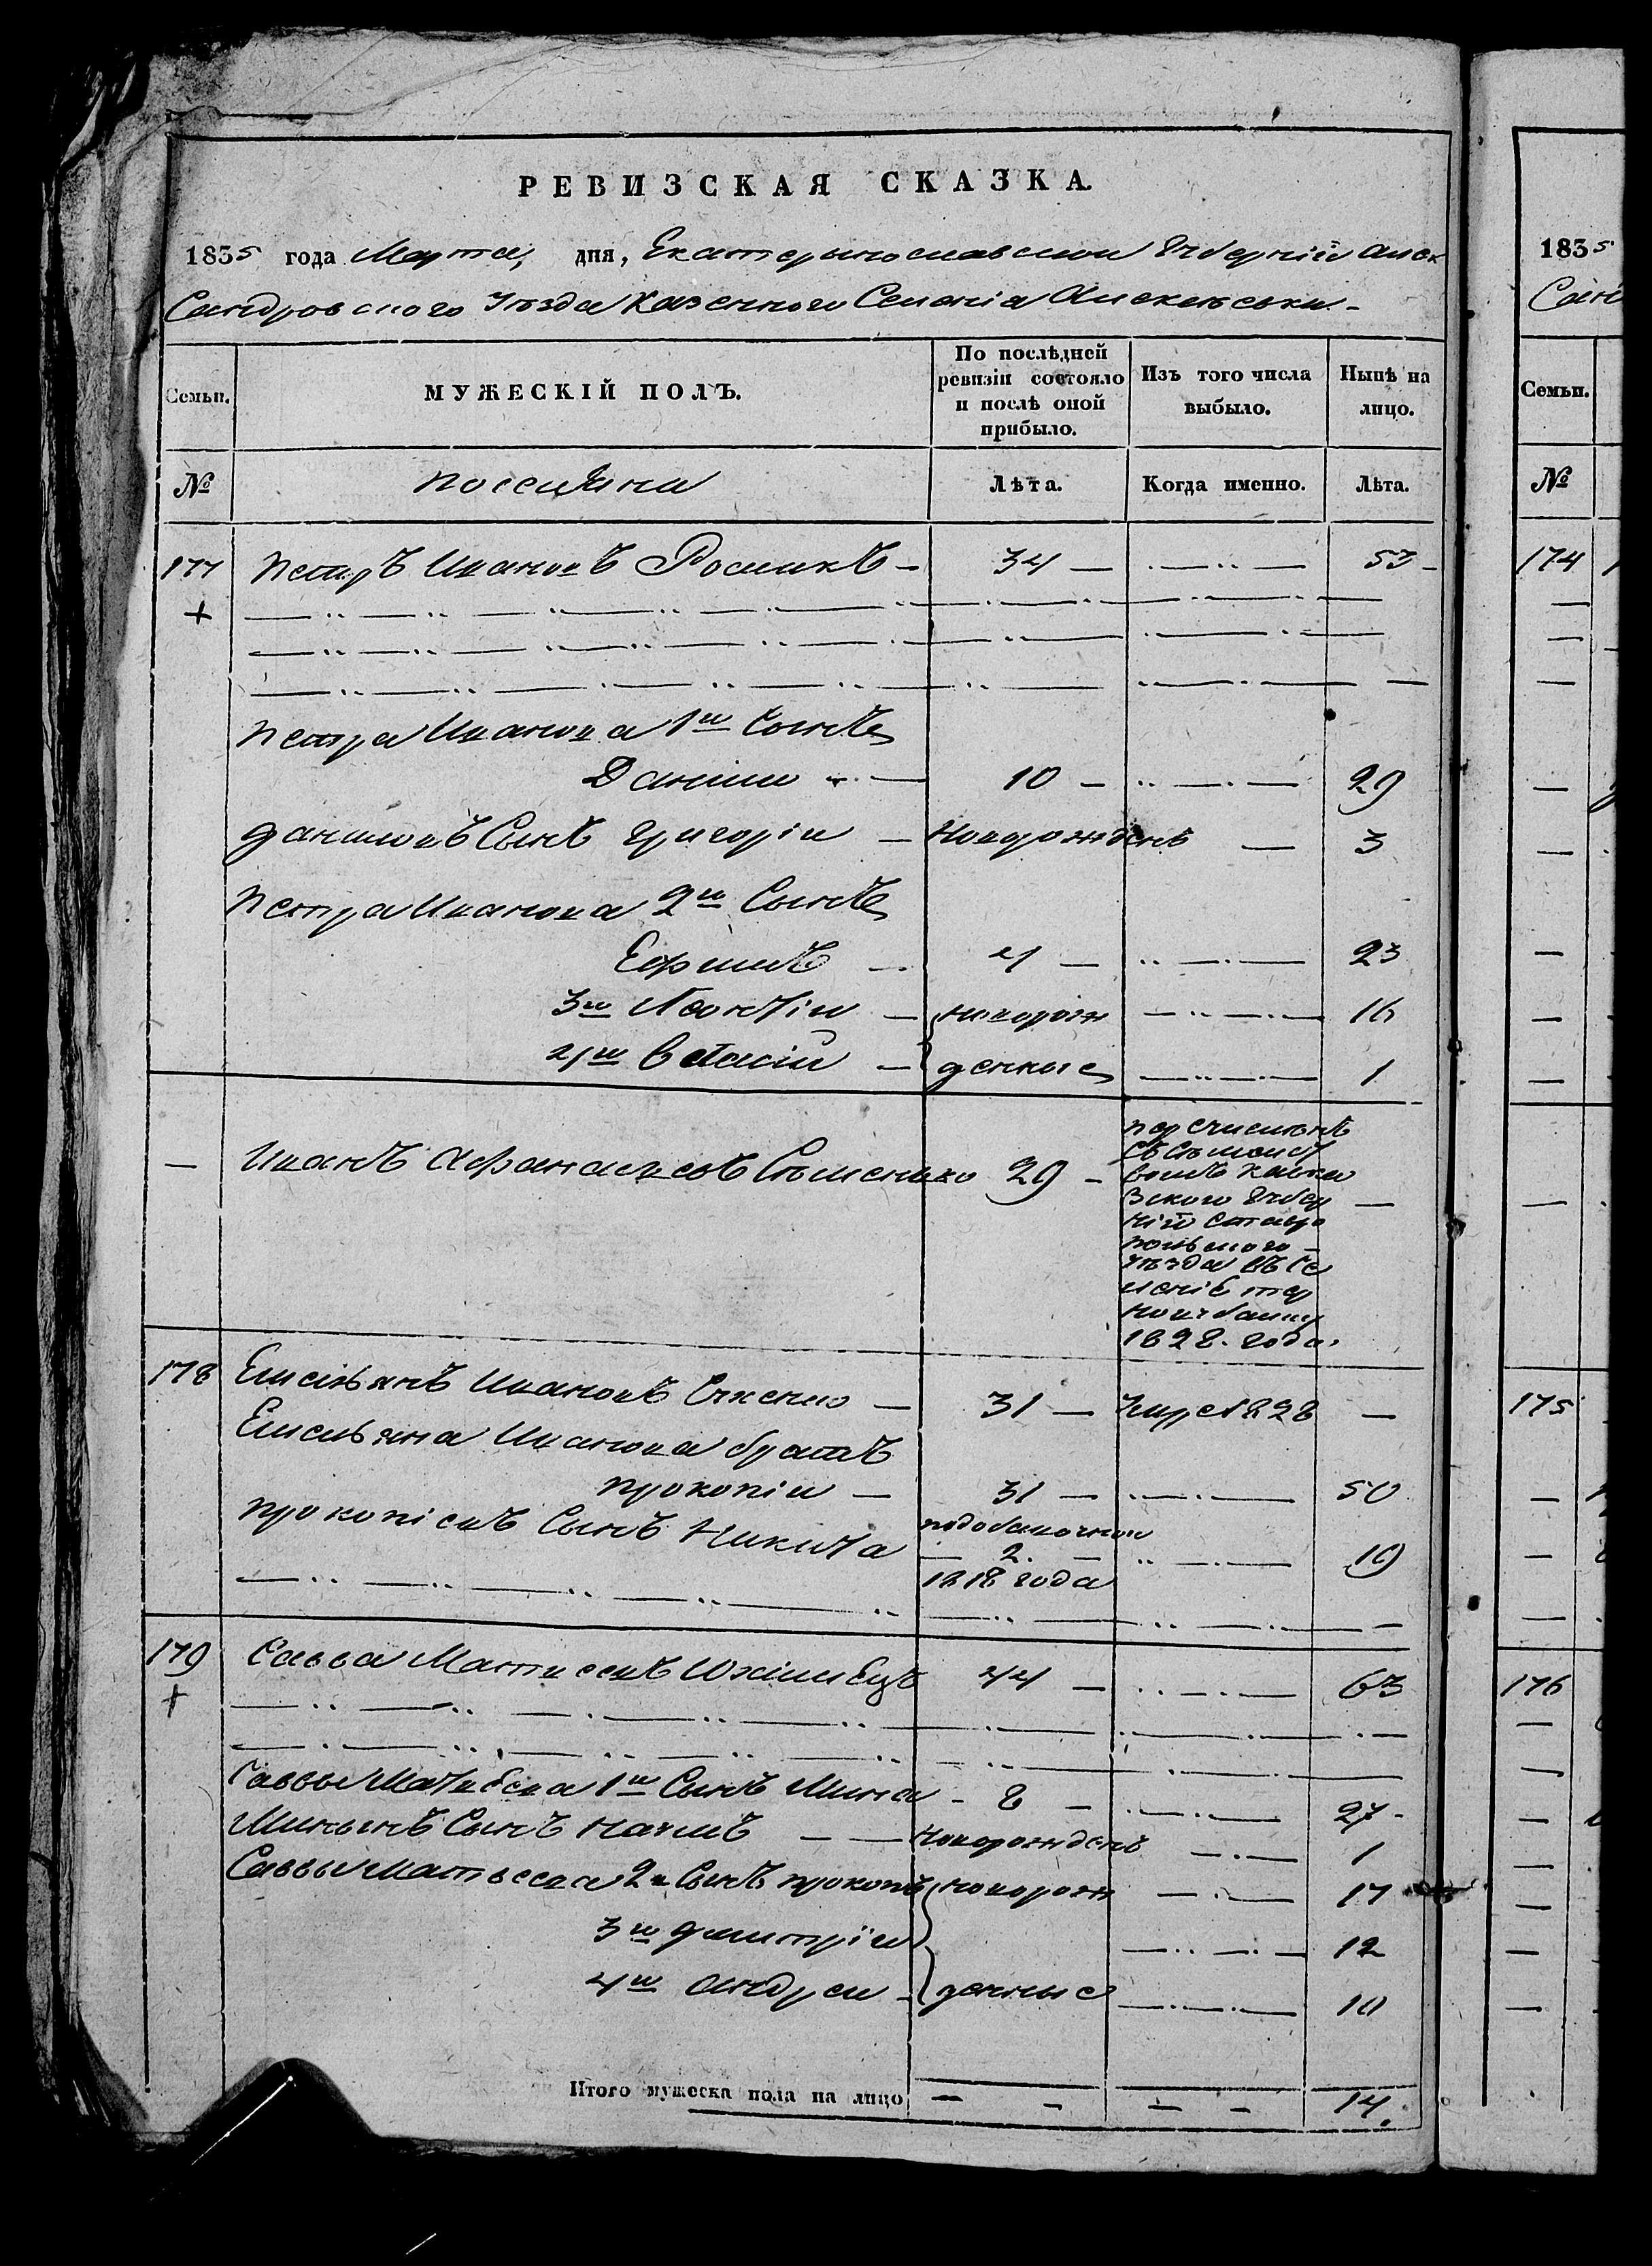 РЕВИЗСКАЯ СКАЗКА.
1835 года Марта, дня, Екатеринославской Губерніи Алек
сандровского Уѣзда Казенного Селенія Алексѣевки.-
Семьи. МУЖЕСКІЙ ПОЛЪ. По послѣдней ревизіи состояло и послѣ оной прибыло. Изъ того числа выбыло. Нынѣ на лицо.
№ поселяни Лѣта. Когда именно. Лѣта.
177 Петръ Ивановъ 34 — 53 -
+
Петра Иванова 1й Сынъ
Данило 10 — 29
Даниловъ Сынъ Григорій — Новорожденъ — 3
Петра Иванова 2й Сынъ
Ефимъ — 4 — 23
3й Леонтій — новорож 16
4й Власій — денные 1
— Иванъ Афанасьевъ Сѣменько 29 - перечисленъ
съ
Кавка
зского Губер
ніи Ставро
польского
уѣзда въ Се
леніе тер
новубалку
1828. года.
178 Емельянъ Ивановъ — 31 — умре 1828 —
Емельяна Иванова братъ
Прокопій — 31 — 50
Прокопіевъ Сынъ Никита
— 2. — 19
1818 года
179 Савва Матвеевъ 44 — 63
+
Саввы Матвеева 1й Сынъ Мина - 8 — 27-
Мининъ Сынъ Наумъ — — Новорожденъ 1
Саввы Матвеева 2й Сынъ Прокопій новорож 17
3й Дмитрій 12
4й Андрей - денные 10
Итого мужеска пола на лицо — - — - 14.
1835
Семьи.
№
174
175
176